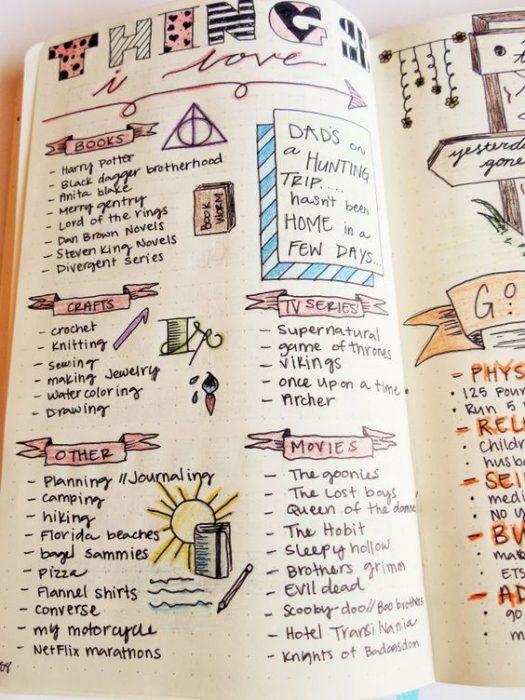 THINGS
i love
BOOKS
- Harry Potter
- Black dagger brotherhood
- Anita blake
- Merry gentry
- Lord of the rings
- Dan Brown Novels
- Steven King Novels
- Divergent series
BOOK WORM
DAD'S on
a HUNTING
TRIP....
hasn't been
HOME in a
FEW DAYS...
CRAFTS
- crochet
- Knitting
- sewing
- making Jewelry
- watercoloring
- Drawing
TV SERIES
- Supernatural
- game of thrones
- vikings
- once upon a time
- Archer
OTHER
- Planning // Journaling
- camping
- hiking
- Florida beaches
- bagel sammies
- Pizza
- Flannel shirts
- converse
- my motorcycle
- NetFlix marathons
MOVIES
- The goonies
- The Lost boys
- Queen of the damne
- The Hobit
- Sleepy hollow
- Brothers grimm
- Evil dead
- Scooby-doo // Boo brothers
- Hotel Transilvania
- Knights of Badassdom
yesterday
gone
GO
- PHYS
• 125 Poun
• Run 5
- REL
• childr
• husb
- SEI
• med
• NO
- BU
• mak
• ETS
- AD
• go
• m